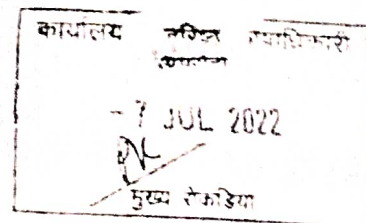 कार्यालय वरिष्ठ कोषाधिकारी
- 7 JUL 2022
मुख्य रोकड़िया